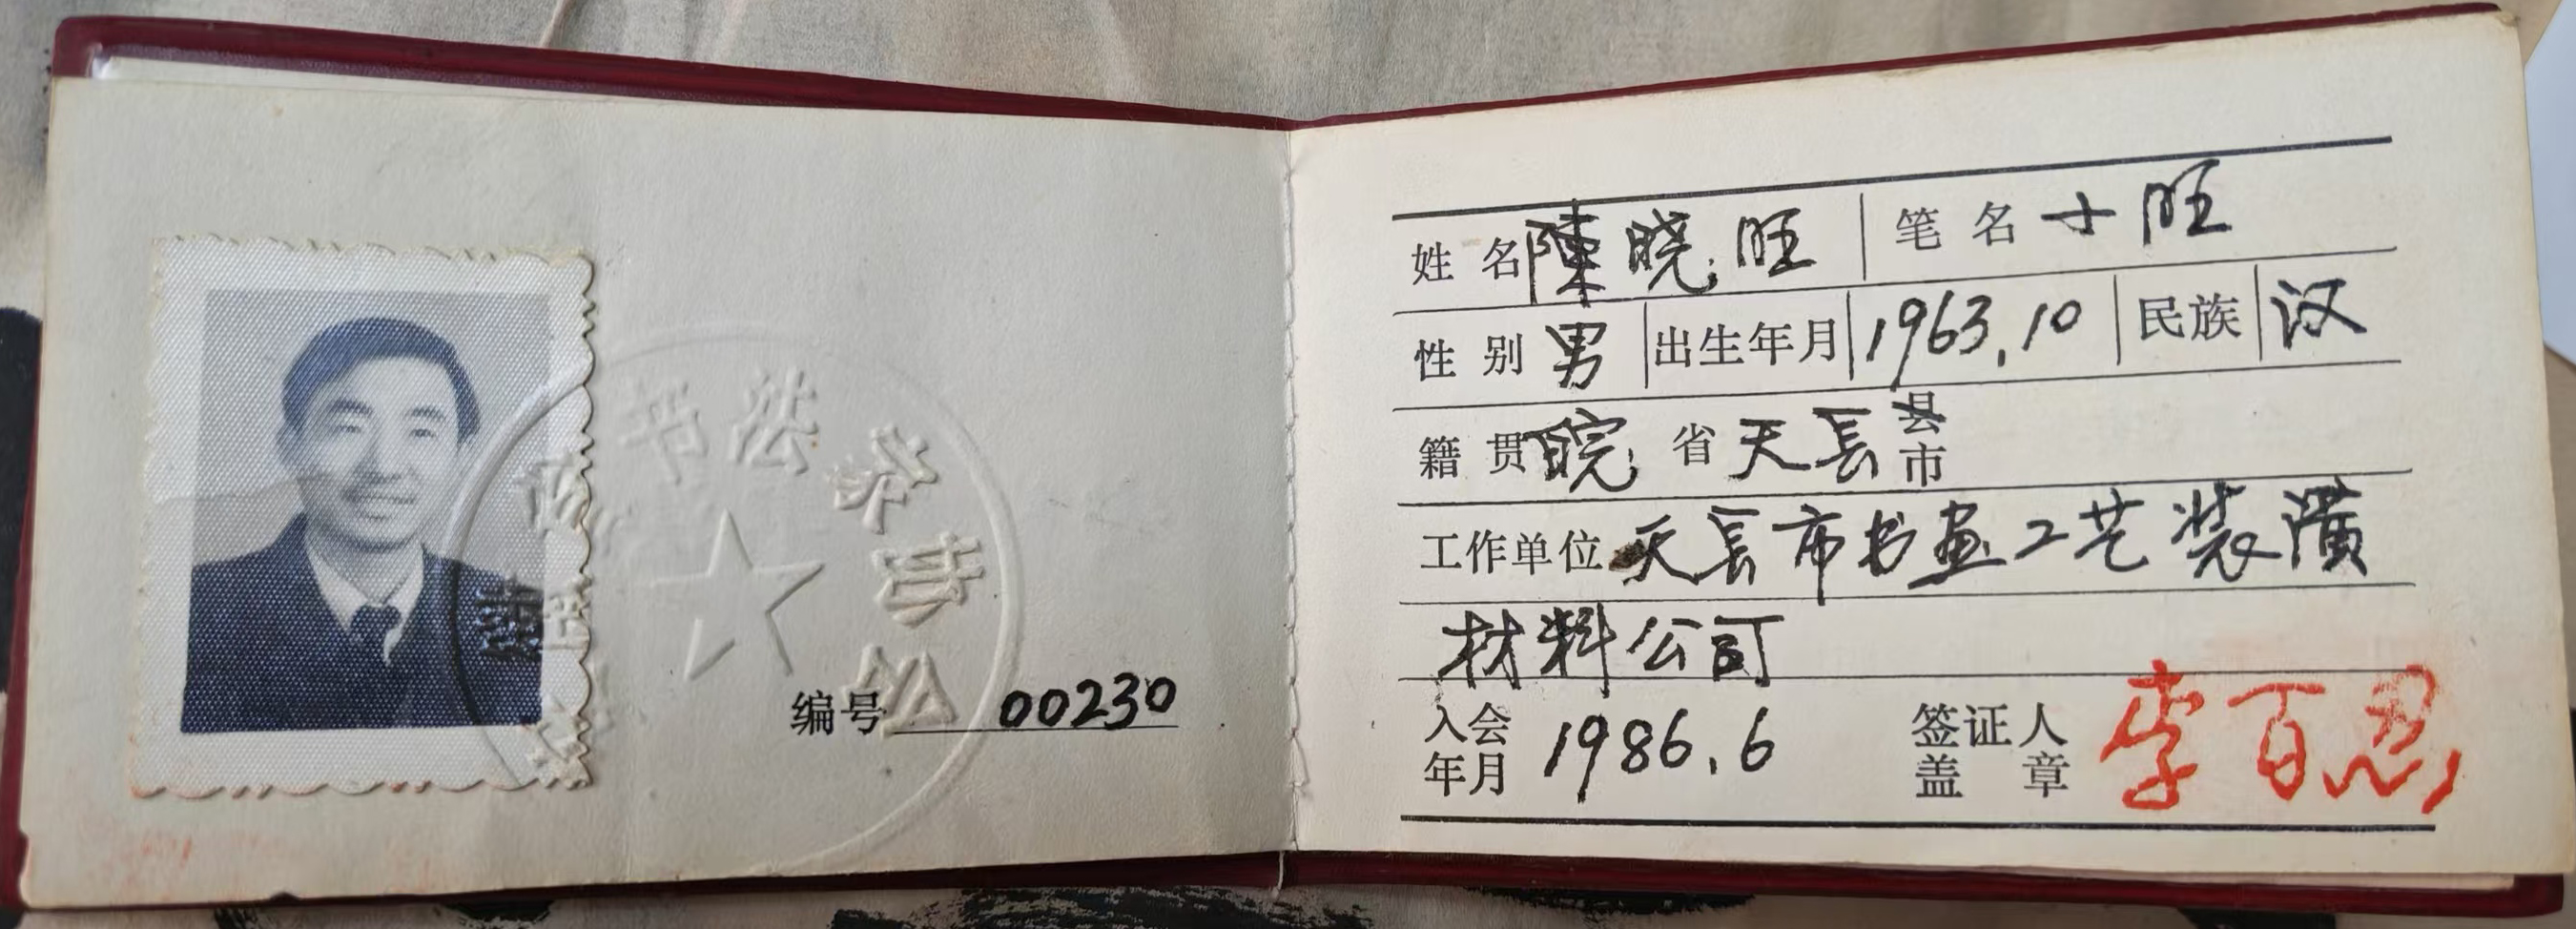 编号 00230
姓名 陳晓旺 笔名 十旺
性别 男 出生年月 1963.10 民族 汉
籍贯 皖 省 天長 县市
工作单位 天長市书画工艺装潢
材料公司
入会年月 1986.6 签证人盖章 李百忍